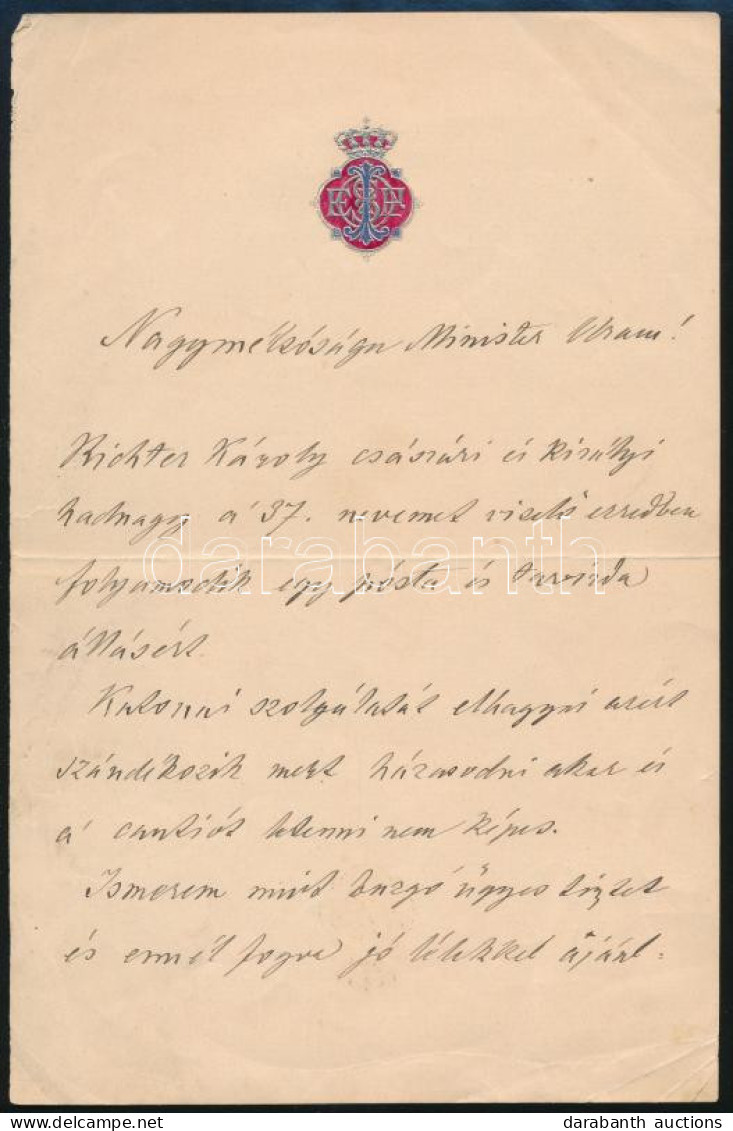 Nagyméltóságu Minister Uram!
Richter Károly császári és királyi
hadnagy a' 37. nevemet viselő ezredben
folyamodik egy pósta és távirda
állásért.
Katonai szolgálatát elhagyni azért
szándékozik mert házasodni akar és
a' cautiót letenni nem képes.
Ismerem mint buzgó ügyes tisztet
és ennél fogva jó lélekkel ajánl-
darabanth
darabanth auctions